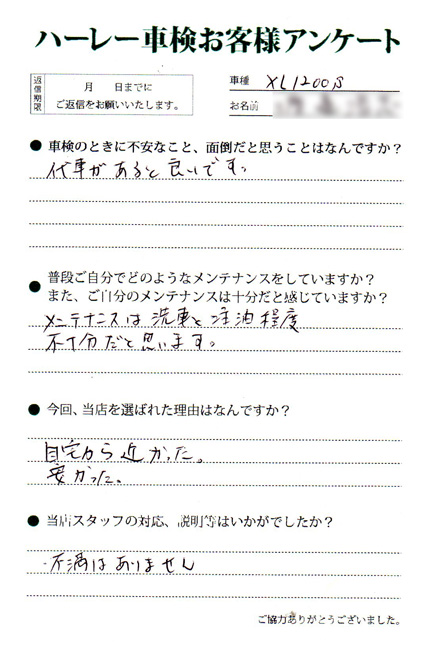 ハーレー車検お客様アンケート
返信期限
月　日までに
ご返信をお願いいたします。
車種 XL1200S
お名前
● 車検のときに不安なこと、面倒だと思うことはなんですか？
代車があると良いです。
● 普段ご自分でどのようなメンテナンスをしていますか？
また、ご自分のメンテナンスは十分だと感じていますか？
メンテナンスは洗車と注油程度
不十分だと思います。
● 今回、当店を選ばれた理由はなんですか？
自宅から近かった。
安かった。
● 当店スタッフの対応、説明等はいかがでしたか？
・不満はありません
ご協力ありがとうございました。